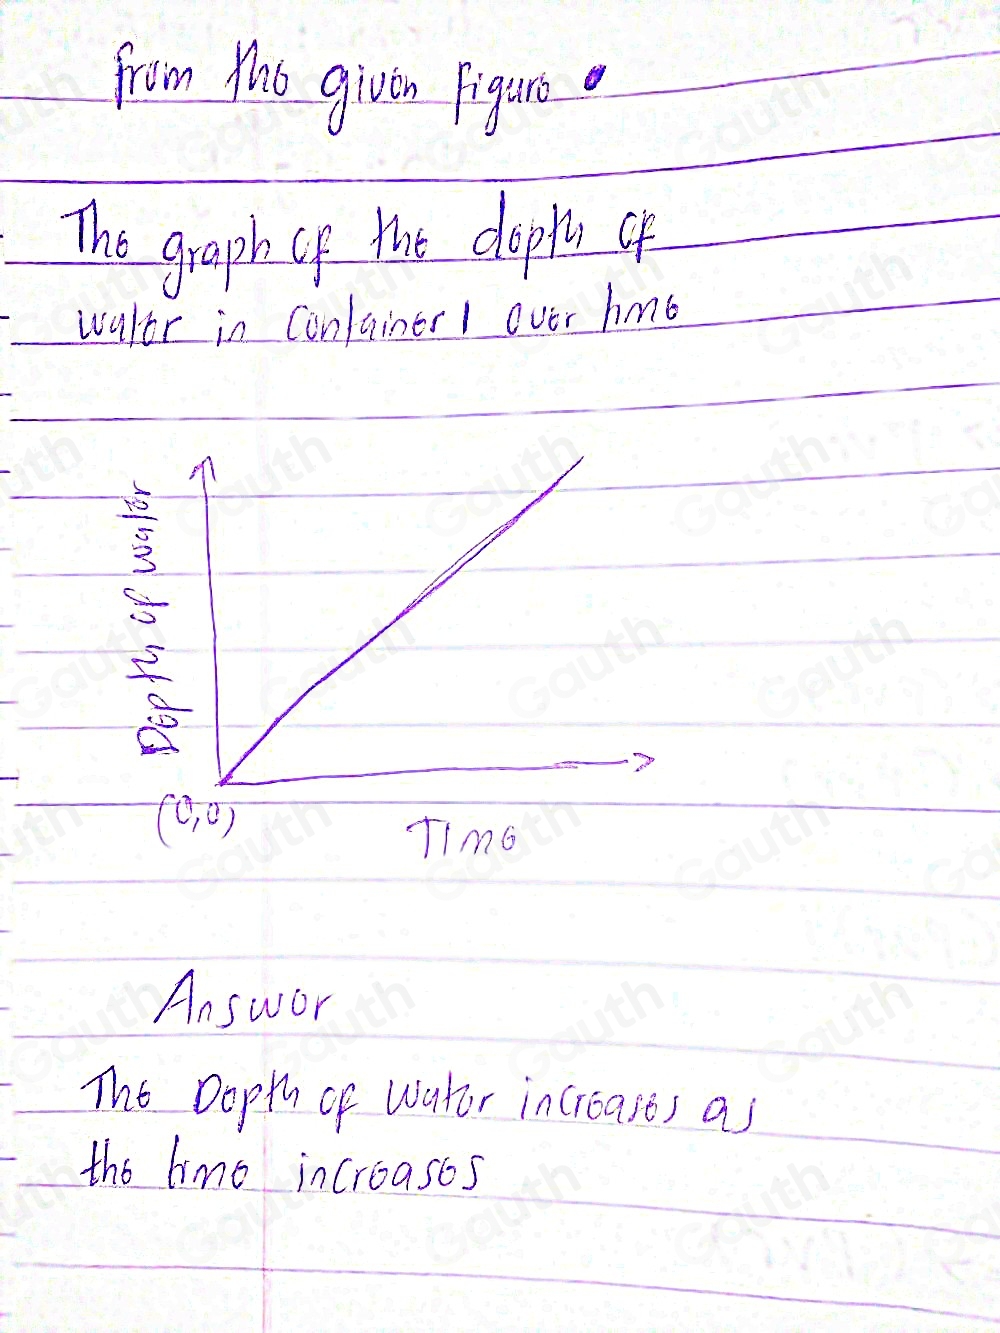 From the given figure.
The graph of the depth of
water in Container 1 over time
Depth of water
(0,0)
Time
Answer
The Depth of water increases as
the time increases